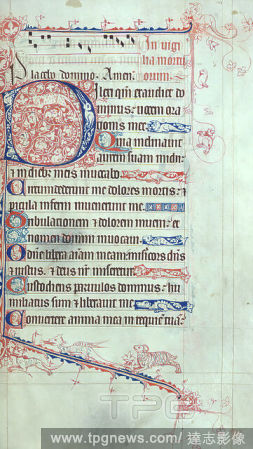 In vigi
lia morti
Placebo domino. Amen
orum.
Dilexi qm exaudiet do
minus: vocem ora
tionis mee
Quia inclinavit
aurem suam michi:
et in diebz meis invocabo.
Circumdederunt me dolores mortis: et
pericula inferni invenerunt me
Tribulationem et dolorem inveni: et
nomen domini invocavi.
O dñe libera aīam meam: misericors dñs
et iustus. et deus nr̄ miseretur.
Custodiens parvulos dominus: hu
miliatus sum et liberavit me.
Convertere anima mea in requiē tuā:
TPG
www.tpgnews.com/ 達志影像